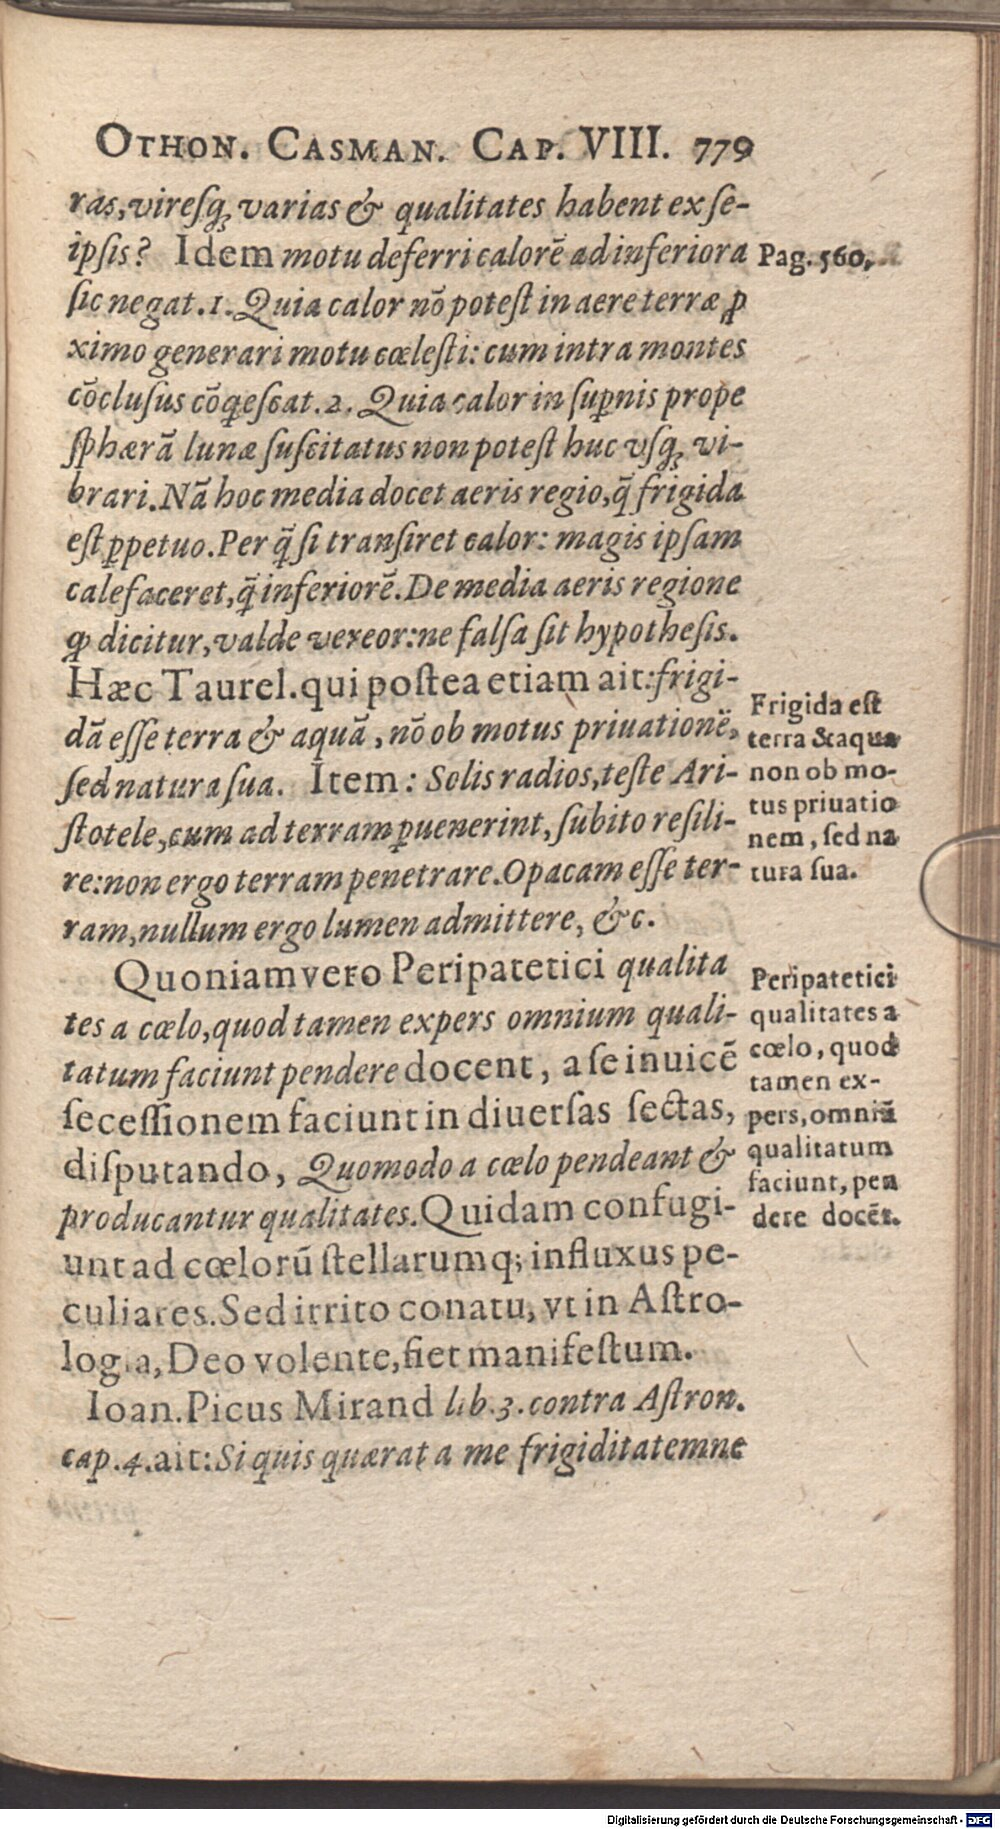 OTHON. CASMAN. CAP. VIII. 779
ras, viresq́; varias & qualitates habent ex se-
ipsis? Idem motu deferri calorē ad inferiora
sic negat. 1. Quia calor nō potest in aere terræ ꝓ
ximo generari motu cœlesti: cum intra montes
cōclusus cōq̨escat. 2. Quia calor in sup̱nis prope
sphærā lunæ suscitatus non potest huc vsq́; vi-
brari. Nā hoc media docet aeris regio, q̄ frigida
est p̱petuo. Per q̄ si transiret calor: magis ipsam
calefaceret, q̄ inferiorē. De media aeris regione
qͩ dicitur, valde vereor: ne falsa sit hypothesis.
Hæc Taurel. qui postea etiam ait: frigi-
dā esse terra & aquā, nō ob motus priuationē,
sed natura sua. Item: Solis radios, teste Ari-
stotele, cum ad terram p̱uenerint, subito resili-
re: non ergo terram penetrare. Opacam esse ter-
ram, nullum ergo lumen admittere, &c.
Quoniam vero Peripatetici qualita
tes a cœlo, quod tamen expers omnium quali-
tatum faciunt pendere docent, a se inuicē
secessionem faciunt in diuersas sectas,
disputando, Quomodo a cœlo pendeant &
producantur qualitates. Quidam confugi-
unt ad cœlorū stellarumq; influxus pe-
culiares. Sed irrito conatu, vt in Astro-
logia, Deo volente, fiet manifestum.
Ioan. Picus Mirand lib. 3. contra Astron.
cap. 4. ait: Si quis quærat a me frigiditatemne
Pag. 560,
Frigida est
terra & aqua
non ob mo-
tus priuatio
nem, sed na
tura sua.
Peripatetici
qualitates a
cœlo, quod
tamen ex-
pers, omniū
qualitatum
faciunt, pen
dere docēt.
Digitalisierung gefördert durch die Deutsche Forschungsgemeinschaft - DFG